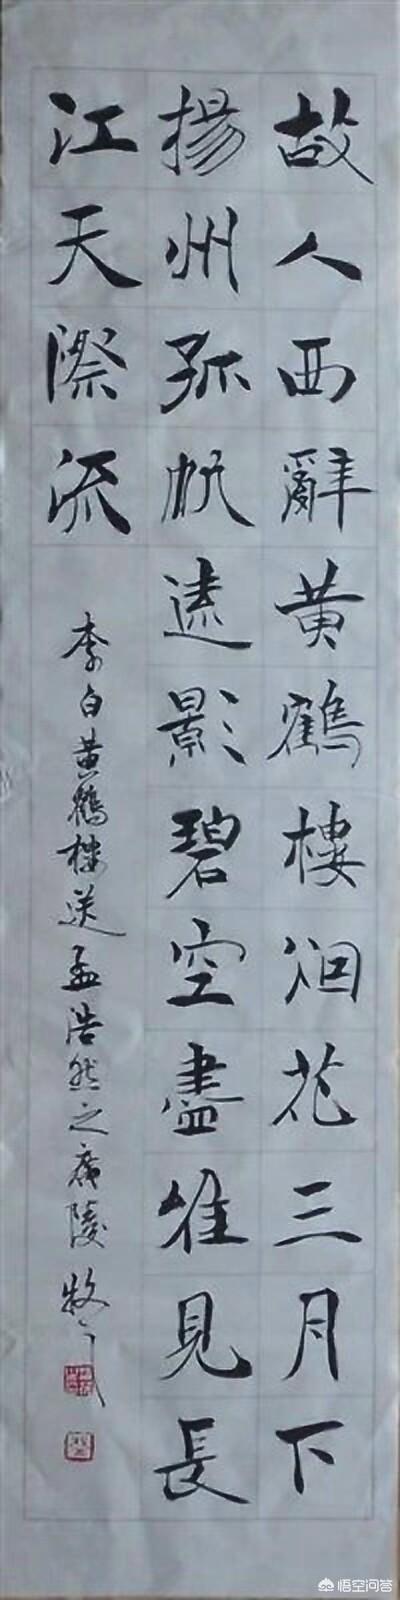 故人西辭黄鶴樓烟花三月下
揚州孤帆遠影碧空盡惟見長
江天際流
李白黄鶴樓送孟浩然之廣陵
悟空问答